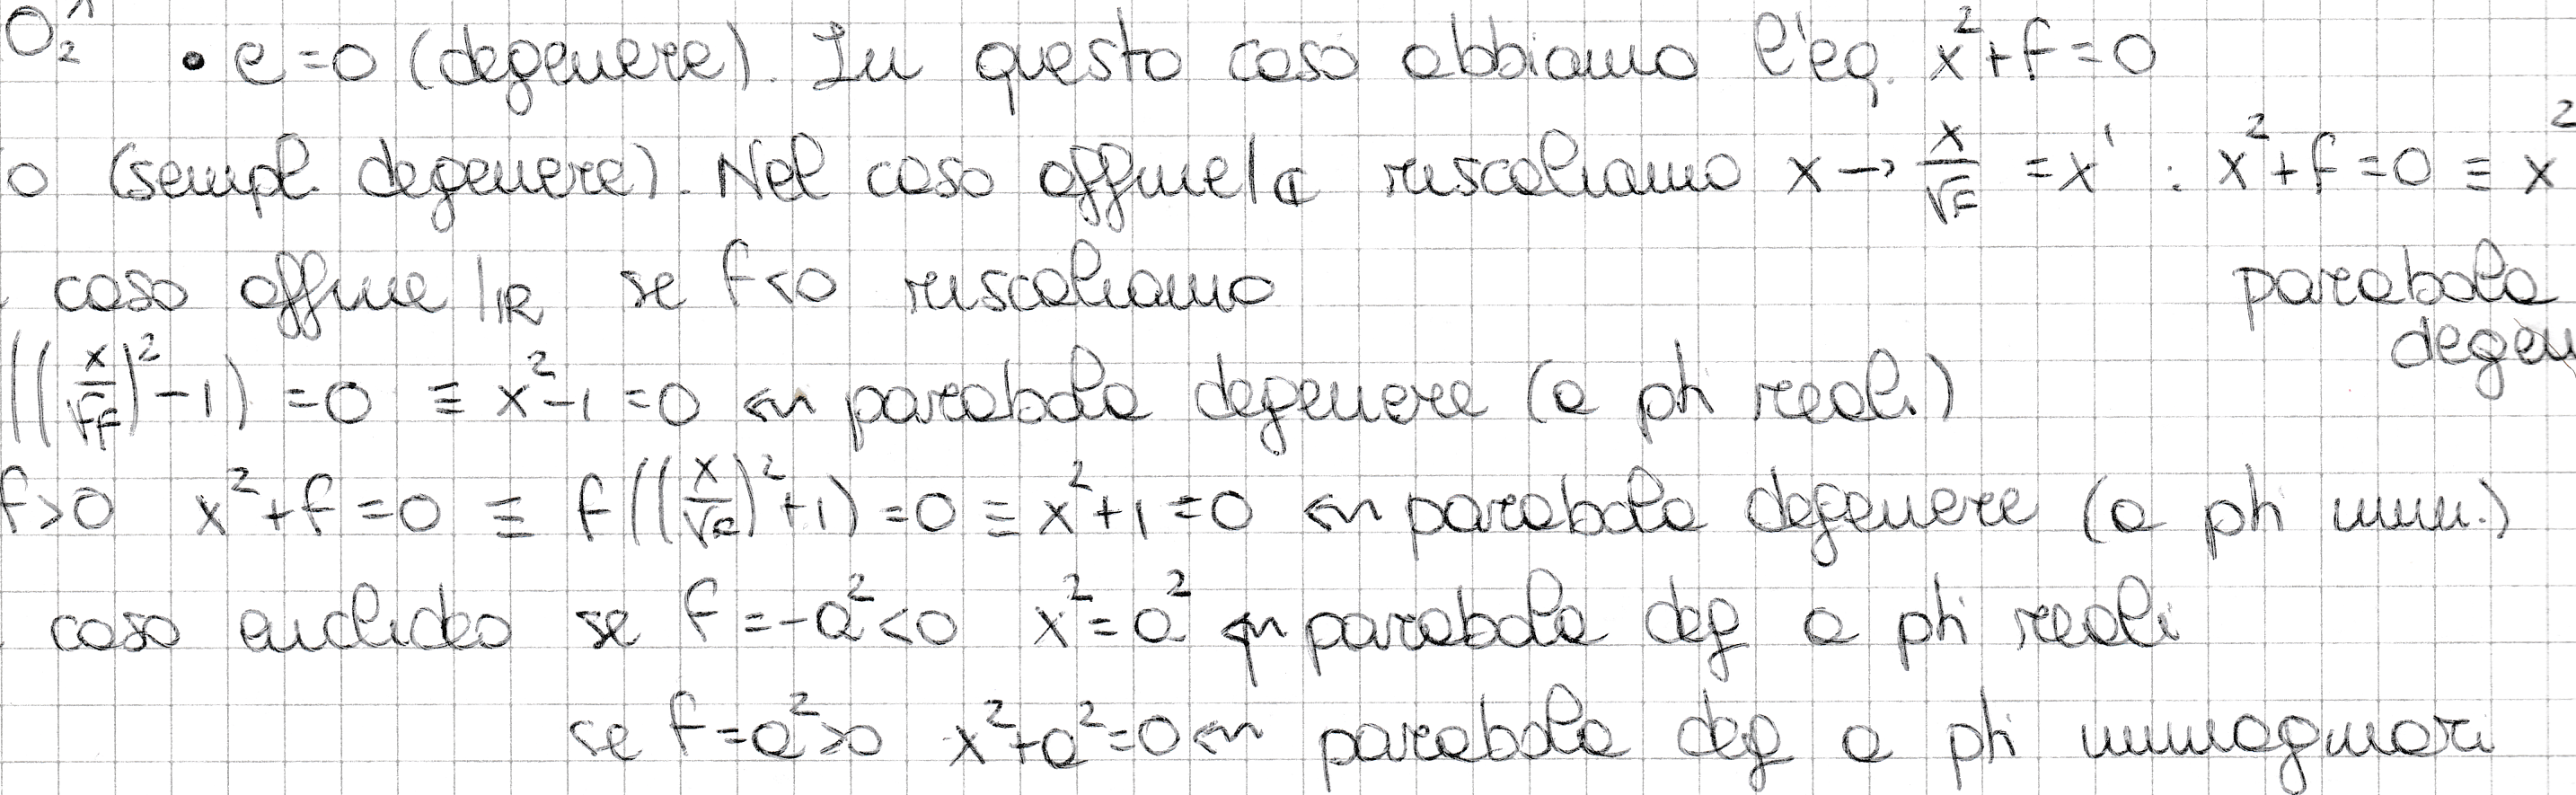 O₂^ • e = 0 (degenere). In questo caso abbiamo l'eq. x² + f = 0
o (sempl. degenere). Nel caso affine|ℂ riscaliamo x → x/√f = x' : x² + f = 0 ≡ x²
caso affine |ℝ se f<0 riscaliamo parabola
degen
((x/√-f)² - 1) = 0 ≡ x² - 1 = 0 ⇜ parabola degenere (a pti reali)
f>0 x² + f = 0 ≡ f((x/√f)² + 1) = 0 ≡ x² + 1 = 0 ⇜ parabola degenere (a pti imm.)
caso euclideo se f = -a² < 0 x² = a² ⇜ parabola deg a pti reali
se f = a² > 0 x² + a² = 0 ⇜ parabola deg a pti immaginari